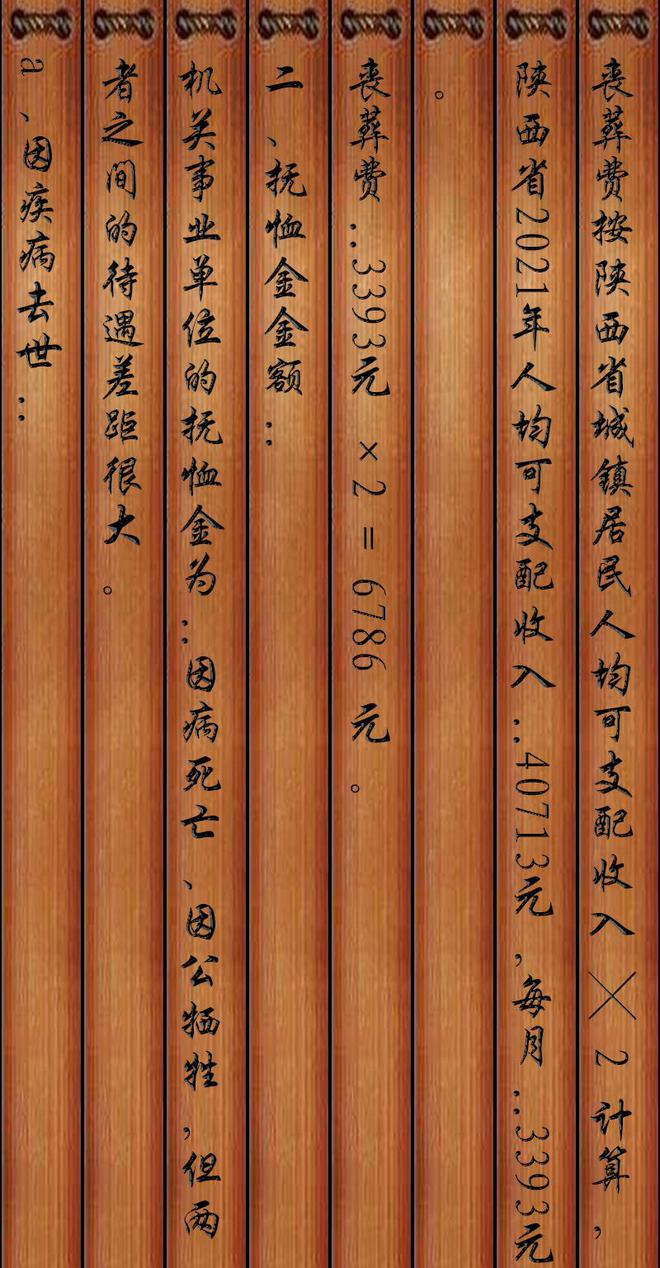 丧葬费按陕西省城镇居民人均可支配收入╳2计算，
陕西省2021年人均可支配收入：40713元，每月：3393元
。
丧葬费：3393元 ×2 = 6786 元。
二、抚恤金金额：
机关事业单位的抚恤金为：因病死亡、因公牺牲，但两
者之间的待遇差距很大。
a、因疾病去世：